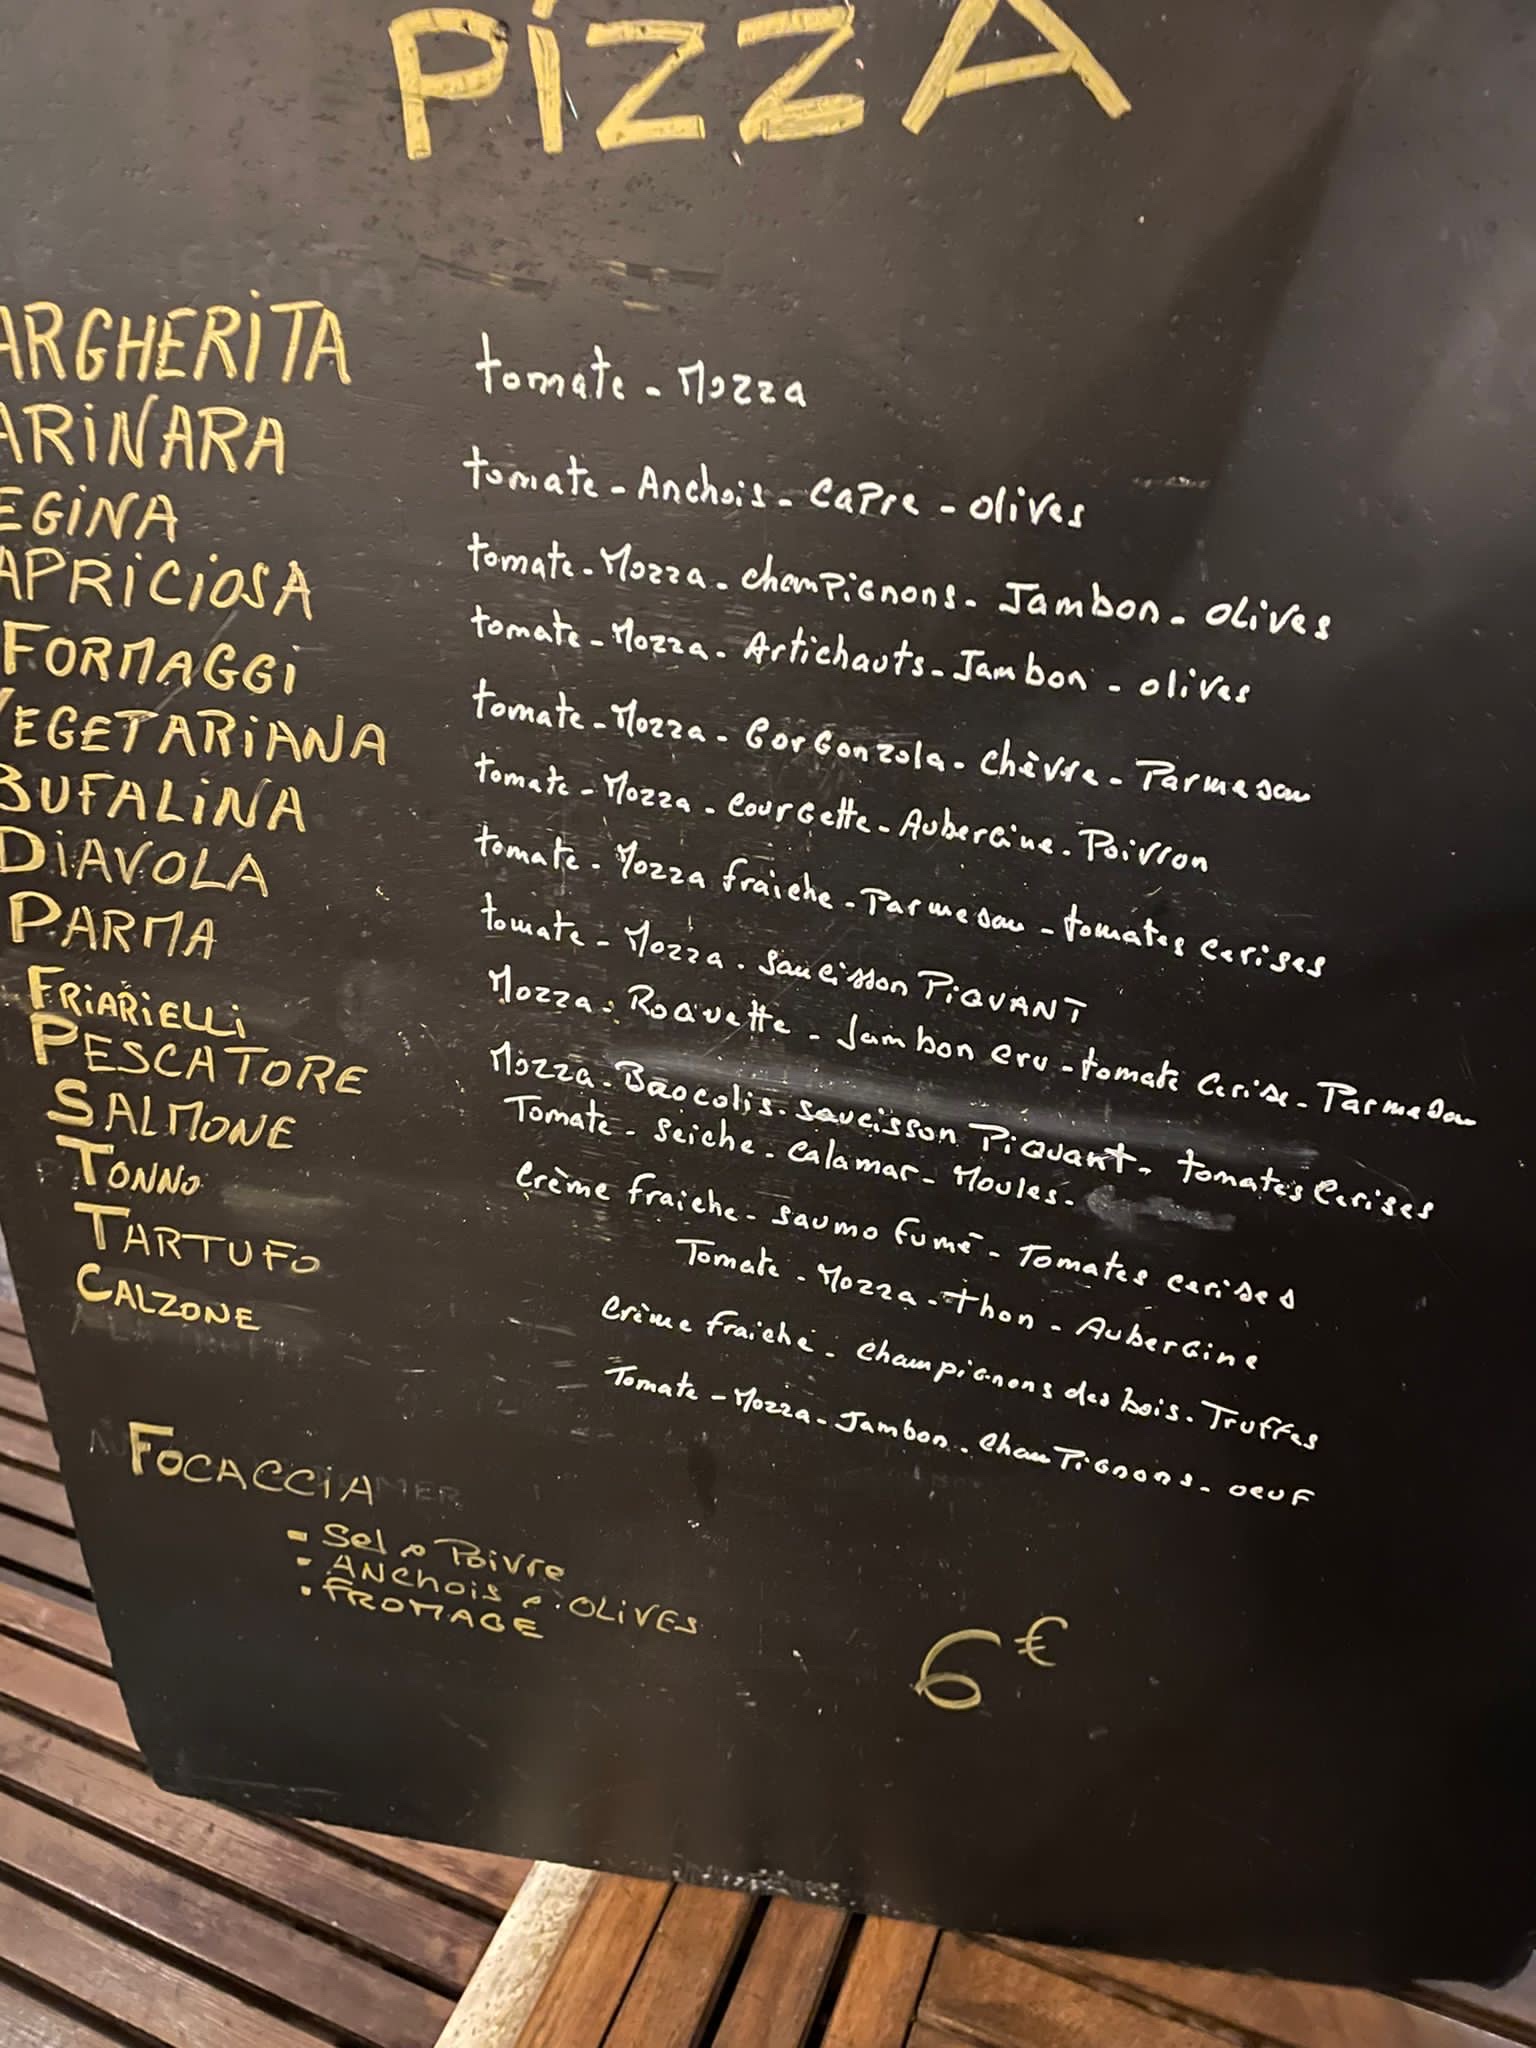 PIZZA
ARGHERITA tomate - Mozza
ARINARA tomate - Anchois - CaPre - olives
EGINA tomate - Mozza - champignons - Jambon - olives
APRICIOSA tomate - Mozza - Artichauts - Jambon - olives
FORMAGGI tomate - Mozza - GorGonzola - chèvre - Parmesan
VEGETARIANA tomate - Mozza - courgette - Aubergine - Poivron
BUFALINA tomate - Mozza fraiche - Parmesan - tomates cerises
DIAVOLA tomate - Mozza - saucisson PiQUANT
PARMA Mozza - Roquette - Jambon cru - tomate cerise - Parmesan
FRIARIELLI Mozza - Brocolis - saucisson PiQuant - tomates cerises
PESCATORE Tomate - seiche - calamar - Moules -
SALMONE crème fraiche - saumo fumé - Tomates cerises
TONNO Tomate - Mozza - thon - Aubergine
TARTUFO crème fraiche - champignons des bois - Truffes
CALZONE Tomate - Mozza - Jambon - chamPignons - oeuf
FOCACCIA
- Sel & Poivre
- ANchois & OLIVES
- FROMAGE
6€